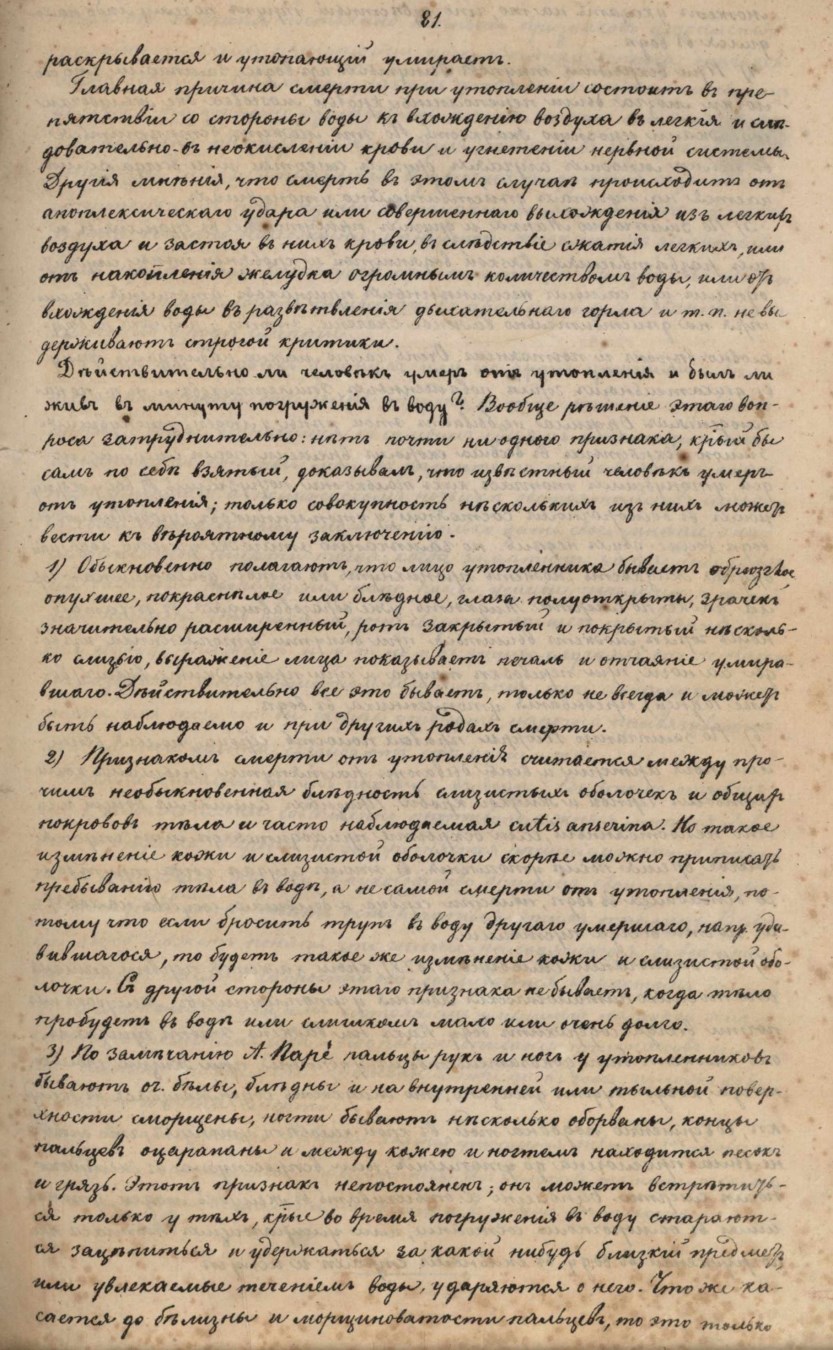 81.
раскрывается и утопающій умираетъ.
Главная причина смерти при утопленіи состоитъ въ пре-
пятствіи со стороны воды къ вхожденію воздуха въ легкія и слѣ-
довательно въ неокисленіи крови и угнетеніи нервной системы.
Другія мнѣнія, что смерть въ этомъ случаѣ происходитъ отъ
апоплексическаго удара или совершеннаго выхожденія изъ легкихъ
воздуха и застоя въ нихъ крови, въ слѣдствіе сжатія легкихъ, или
отъ накопленія желудка огромнымъ количествомъ воды, или отъ
вхожденія воды въ развѣтвленія дыхательнаго горла и т. п. не вы
держиваютъ строгой критики.
Дѣйствительно ли человѣкъ умеръ отъ утопленія и былъ ли
живъ въ минуту погруженія въ воду? Вообще рѣшеніе этаго воп-
роса затруднительно: нѣтъ почти ни одного признака, крый бы
самъ по себѣ взятый, доказывалъ, что извѣстный человѣкъ умеръ
отъ утопленія; только совокупность нѣсколькихъ изъ нихъ можетъ
вести къ вѣроятному заключенію.
1) Обыкновенно полагаютъ, что лицо утопленника бываетъ обрюзглое
опухшее, покраснѣлое или блѣдное, глаза полуоткрыты, зрачекъ
значительно расширенный, ротъ закрытый и покрытый нѣсколь-
ко слизью, выраженіе лица показываетъ печаль и отчаяніе умира-
вшаго. Дѣйствительно все это бываетъ, только не всегда и можетъ
быть наблюдаемо и при другихъ родахъ смерти.
2) Признакомъ смерти отъ утопленія считается между про-
чимъ необыкновенная блѣдность слизистыхъ оболочекъ и общихъ
покрововъ тѣла и часто наблюдаемая cutis anserina. Но такое
измѣненіе кожи и слизистой оболочки скорѣе можно приписать
пребыванію тѣла въ водѣ, а не самой смерти отъ утопленія, по-
тому что если бросить трупъ въ воду другаго умершаго, напр. уда-
вившагося, то будетъ такое же измѣненіе кожи и слизистой обо-
лочки. Съ другой стороны этаго признака не бываетъ, когда тѣло
пробудетъ въ водѣ или слишкомъ мало или очень долго.
3) По замѣчанію А. Паре́ пальцы рукъ и ногъ у утопленниковъ
бываютъ оч. бѣлы, блѣдны и на внутренней или тыльной повер-
хности сморщены, ногти бываютъ нѣсколько оборваны, концы
пальцевъ оцарапаны и между кожею и ногтемъ находится песокъ
и грязь. Этотъ признакъ непостояненъ; онъ можетъ встрѣтить-
ся только у тѣхъ, крые во время погруженія въ воду старают-
ся зацѣпиться и удержаться за какой нибудь близкій предметъ
или увлекаемые теченіемъ воды, ударяются о него. Что же ка-
сается до бѣлизны и морщиноватости пальцевъ, то это только